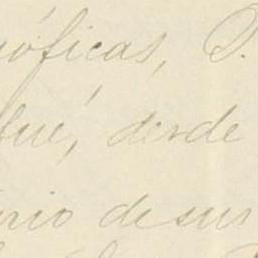 óficas,
fué, desde
rio de sus